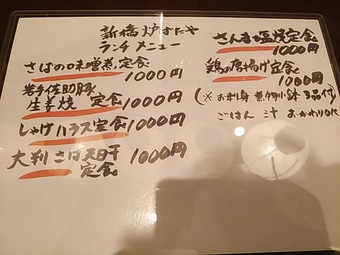 新橋 炉かたや
ランチ メニュー
さばの味噌煮定食
1000円
岩手佐助豚
生姜焼 定食 1000円
しゃけハラス定食 1000円
大判 さば天日干 1000円
定食
さんま塩焼定食
1000円
鶏の唐揚げ定食
1000円
(※お刺身 煮物小鉢 2品付)
ごはん 汁 おかわりOK